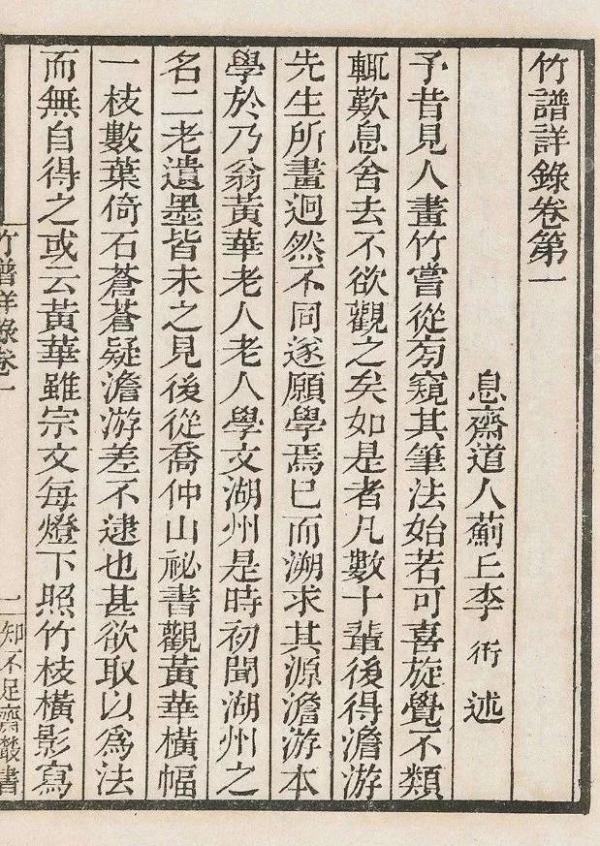 竹譜詳錄卷第一
息齋道人薊丘李衎述
予昔見人畫竹嘗從旁窺其筆法始若可喜旋覺不類
輒歎息舍去不欲觀之矣如是者凡數十輩後得澹游
先生所畫迥然不同遂願學焉已而溯求其源澹游本
學於乃翁黃華老人老人學文湖州是時初聞湖州之
名二老遺墨皆未之見後從喬仲山祕書觀黃華橫幅
一枝數葉倚石蒼蒼疑澹游差不逮也甚欲取以為法
而無自得之或云黃華雖宗文每燈下照竹枝橫影寫
竹譜詳錄卷一 一 知不足齋叢書